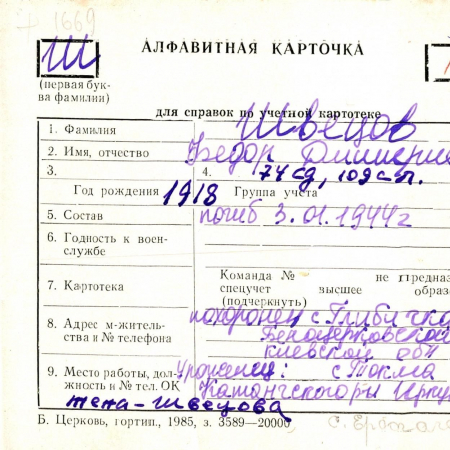 1669
Ш
АЛФАВИТНАЯ КАРТОЧКА
(первая бук-
ва фамилии)
для справок по учетной картотеке
1. Фамилия Швецов
2. Имя, отчество Федор Дмитрие
3. 4. 74 сд, 109 сп.
Год рождения 1918 Группа учета
5. Состав погиб 3.01.1944г
6. Годность к воен-
службе
Команда № не предназ
7. Картотека спецучет высшее образо
(подчеркнуть)
8. Адрес м-житель-
ства и № телефона
похоронен с
Белоцерковской
киевской обл
9. Место работы, дол-
жность и № тел. ОК
Уроженец: с Токма
Катангского рн Ирку
жена - Швецова
Б. Церковь, гортип., 1985, з. 3589—20000